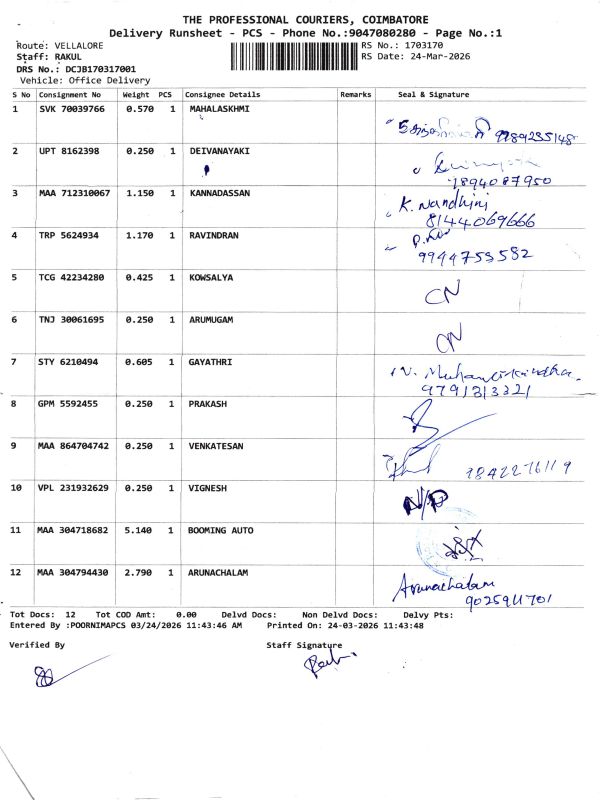 THE PROFESSIONAL COURIERS, COIMBATORE
Delivery Runsheet - PCS - Phone No.:9047080280 - Page No.:1
Route: VELLALORE RS No.: 1703170
Staff: RAKUL RS Date: 24-Mar-2026
DRS No.: DCJB170317001
Vehicle: Office Delivery
S No Consignment No Weight PCS Consignee Details Remarks Seal & Signature
1 SVK 70039766 0.570 1 MAHALASKHMI 9789235148
2 UPT 8162398 0.250 1 DEIVANAYAKI
7894087950
3 MAA 712310067 1.150 1 KANNADASSAN K. Nandhini
8144069666
4 TRP 5624934 1.170 1 RAVINDRAN
9944753582
5 TCG 42234280 0.425 1 KOWSALYA CN
6 TNJ 30061695 0.250 1 ARUMUGAM CN
7 STY 6210494 0.605 1 GAYATHRI
9791313321
8 GPM 5592455 0.250 1 PRAKASH
9 MAA 864704742 0.250 1 VENKATESAN
10 VPL 231932629 0.250 1 VIGNESH N/P
11 MAA 304718682 5.140 1 BOOMING AUTO
12 MAA 304794430 2.790 1 ARUNACHALAM Arunachalam
9025911701
Tot Docs: 12 Tot COD Amt: 0.00 Delvd Docs: Non Delvd Docs: Delvy Pts:
Entered By :POORNIMAPCS 03/24/2026 11:43:46 AM Printed On: 24-03-2026 11:43:48
Verified By Staff Signature